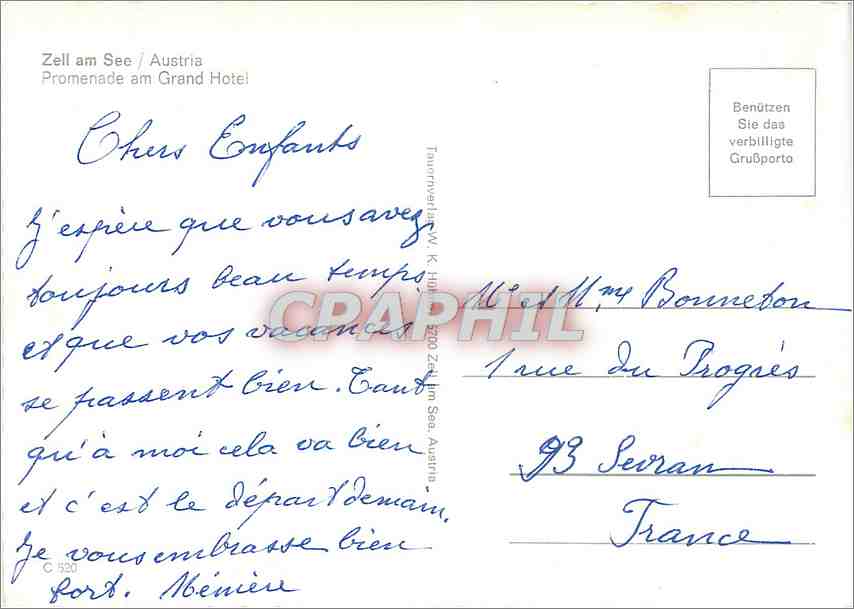 Zell am See / Austria
Promenade am Grand Hotel
Benützen
Sie das
verbilligte
Grußporto
Chers Enfants
J'espère que vous avez
toujours beau temps
et que vos vacances
se passent bien. Tant
qu'à moi cela va bien
et c'est le départ demain.
Je vous embrasse bien
fort. Mémère
C 520
Tauernverlag W. K. 5700 Zell am See, Austria
CPAPHIL
Mr et Mme Bonneton
1 rue du Progrès
93 Sevran
France